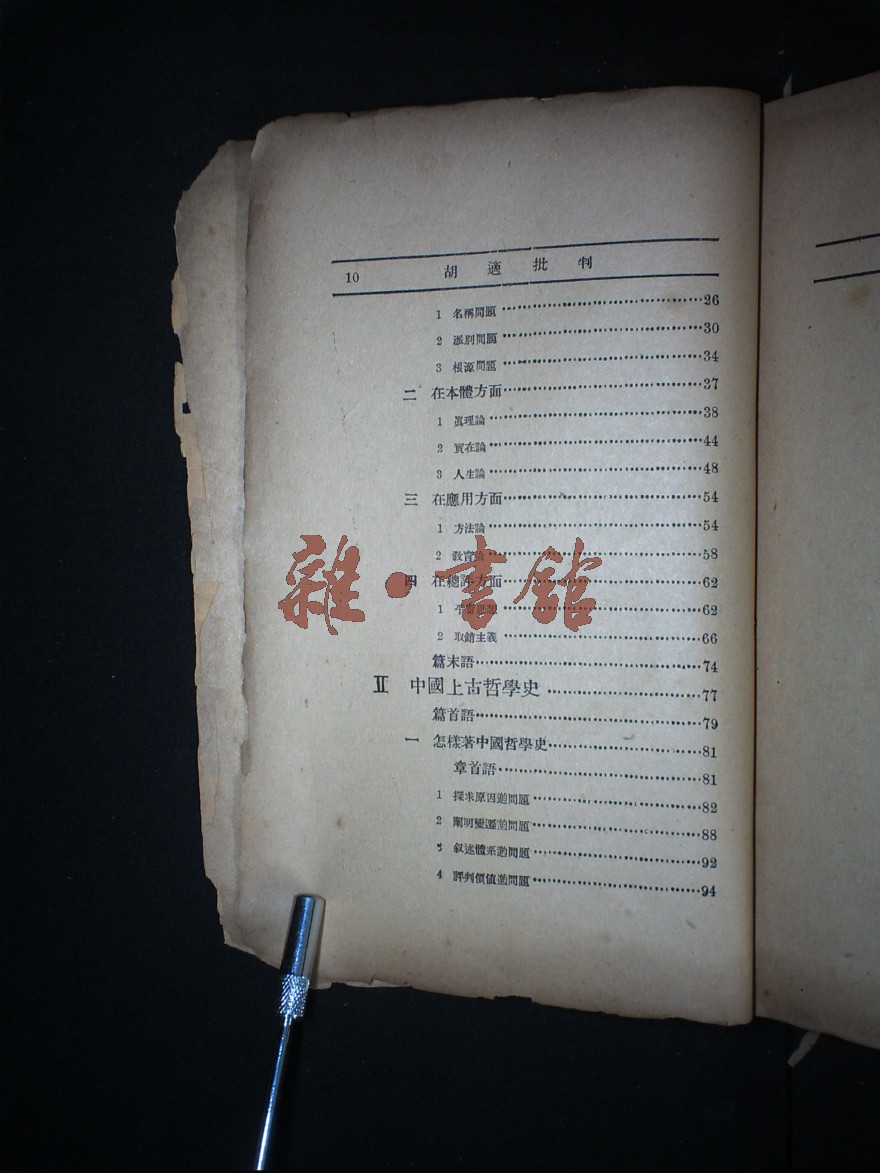 10 胡適批判
1 名稱問題 26
2 派別問題 30
3 根源問題 34
二 在本體方面 37
1 眞理論 38
2 實在論 44
3 人生論 48
三 在應用方面 54
1 方法論 54
2 敎育論 58
四 在總評方面 62
1 62
2 取銷主義 66
篇末語 74
II 中國上古哲學史 77
篇首語 79
一 怎樣著中國哲學史 81
章首語 81
1 探求原因 問題 82
2 闡明變遷 問題 88
3 叙述體系 問題 92
4 評判價值 問題 94
雜·書館